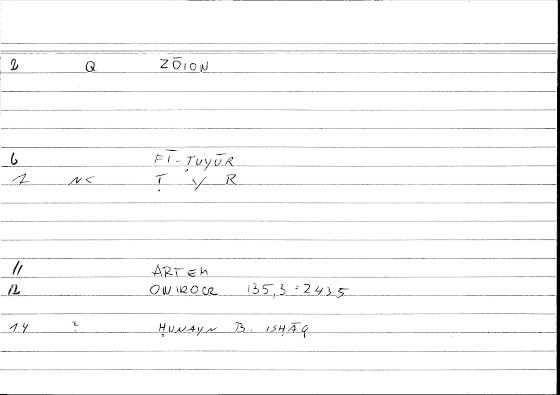 2 Q ZŌION
6 FĪ-ṬUYŪR
7 NC Ṭ Y R
11 ARTEM
12 ONIROCR 135,3 : 2435
14 ? ḤUNAYN B. ISḤĀQ